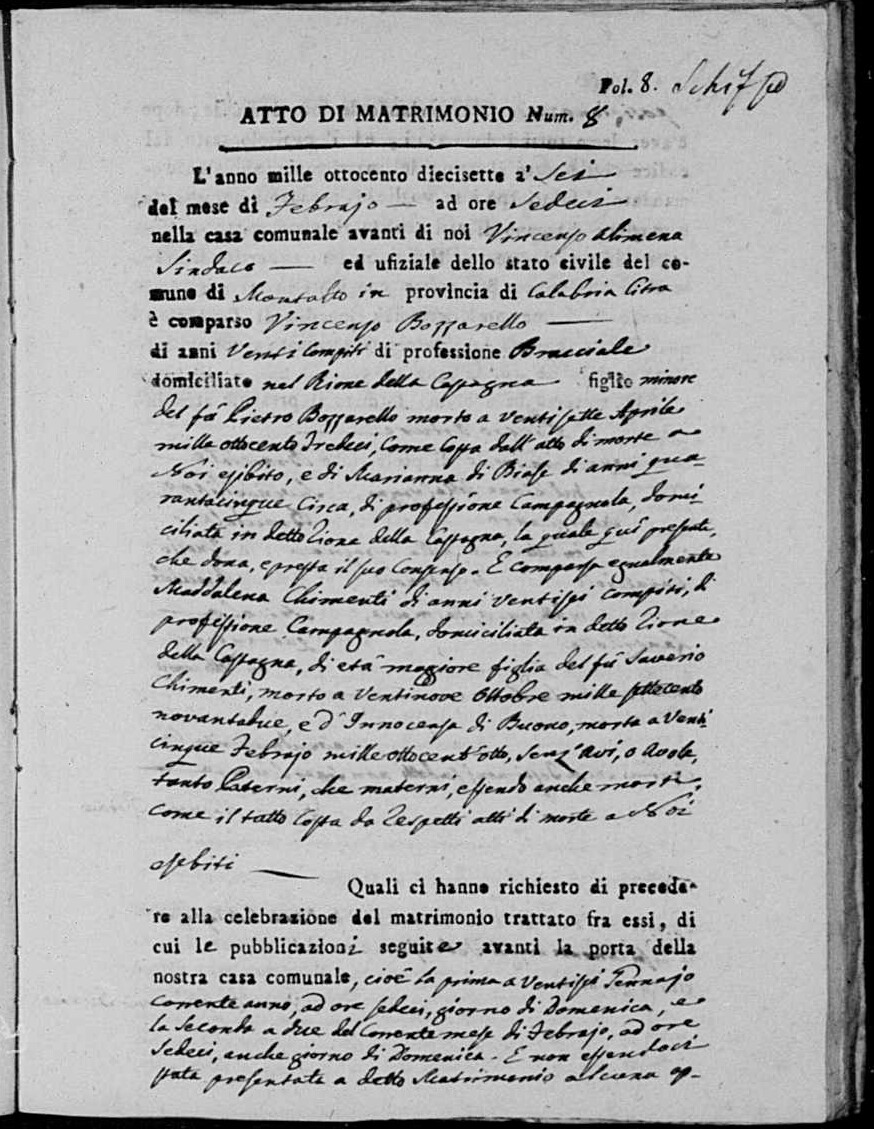 Pol. 8. Schiffo
ATTO DI MATRIMONIO Num. 8
L'anno mille ottocento diecisette a' Sei
del mese di Febrajo — ad ore Sedeci
nella casa comunale avanti di noi Vincenzo Alimena
Sindaco — ed ufiziale dello stato civile del co-
mune di Montalto in provincia di Calabria Citra
è comparso Vincenzo Bozzarello —
di anni Venti Compiti di professione Bracciale
domiciliato nel Rione della Castagna figlio minore
del fù Pietro Bozzarello morto a ventisette Aprile
mille ottocento Tredeci, Come Costa dall'atto di morte a
Noi esibito, e di Marianna di Biase di anni qua-
rantacinque Circa, di professione Campagnola, domi-
ciliata in detto Rione della Castagna, la quale quì presente,
che dona, e presta il suo Consenso. E comparsa egualmente
Maddalena Chimenti di anni ventisei compiti, di
professione Campagnola, domiciliata in detto Rione
della Castagna, di età maggiore figlia del fù Saverio
Chimenti, morto a ventinove Ottobre mille settecento
novantadue, e d'Innocenza di Buono, morta a Venti
cinque Febrajo mille ottocent'otto, senz'Avi, o Avole,
tanto Paterni, che materni, essendo anche morti,
come il tutto Costa da respetti atti di morte a Noi
esebiti —
Quali ci hanno richiesto di procede-
re alla celebrazione del matrimonio trattato fra essi, di
cui le pubblicazioni seguite avanti la porta della
nostra casa comunale, cioè la prima a Ventisei Gennajo
Corrente anno, ad ore sedeci, giorno di Domenica, e
la Seconda a due del Corrente mese di Febrajo, ad ore
Sedeci, anche giorno di Domenica. E non essendoci
stata presentata a detto Matrimonio alcuna op-